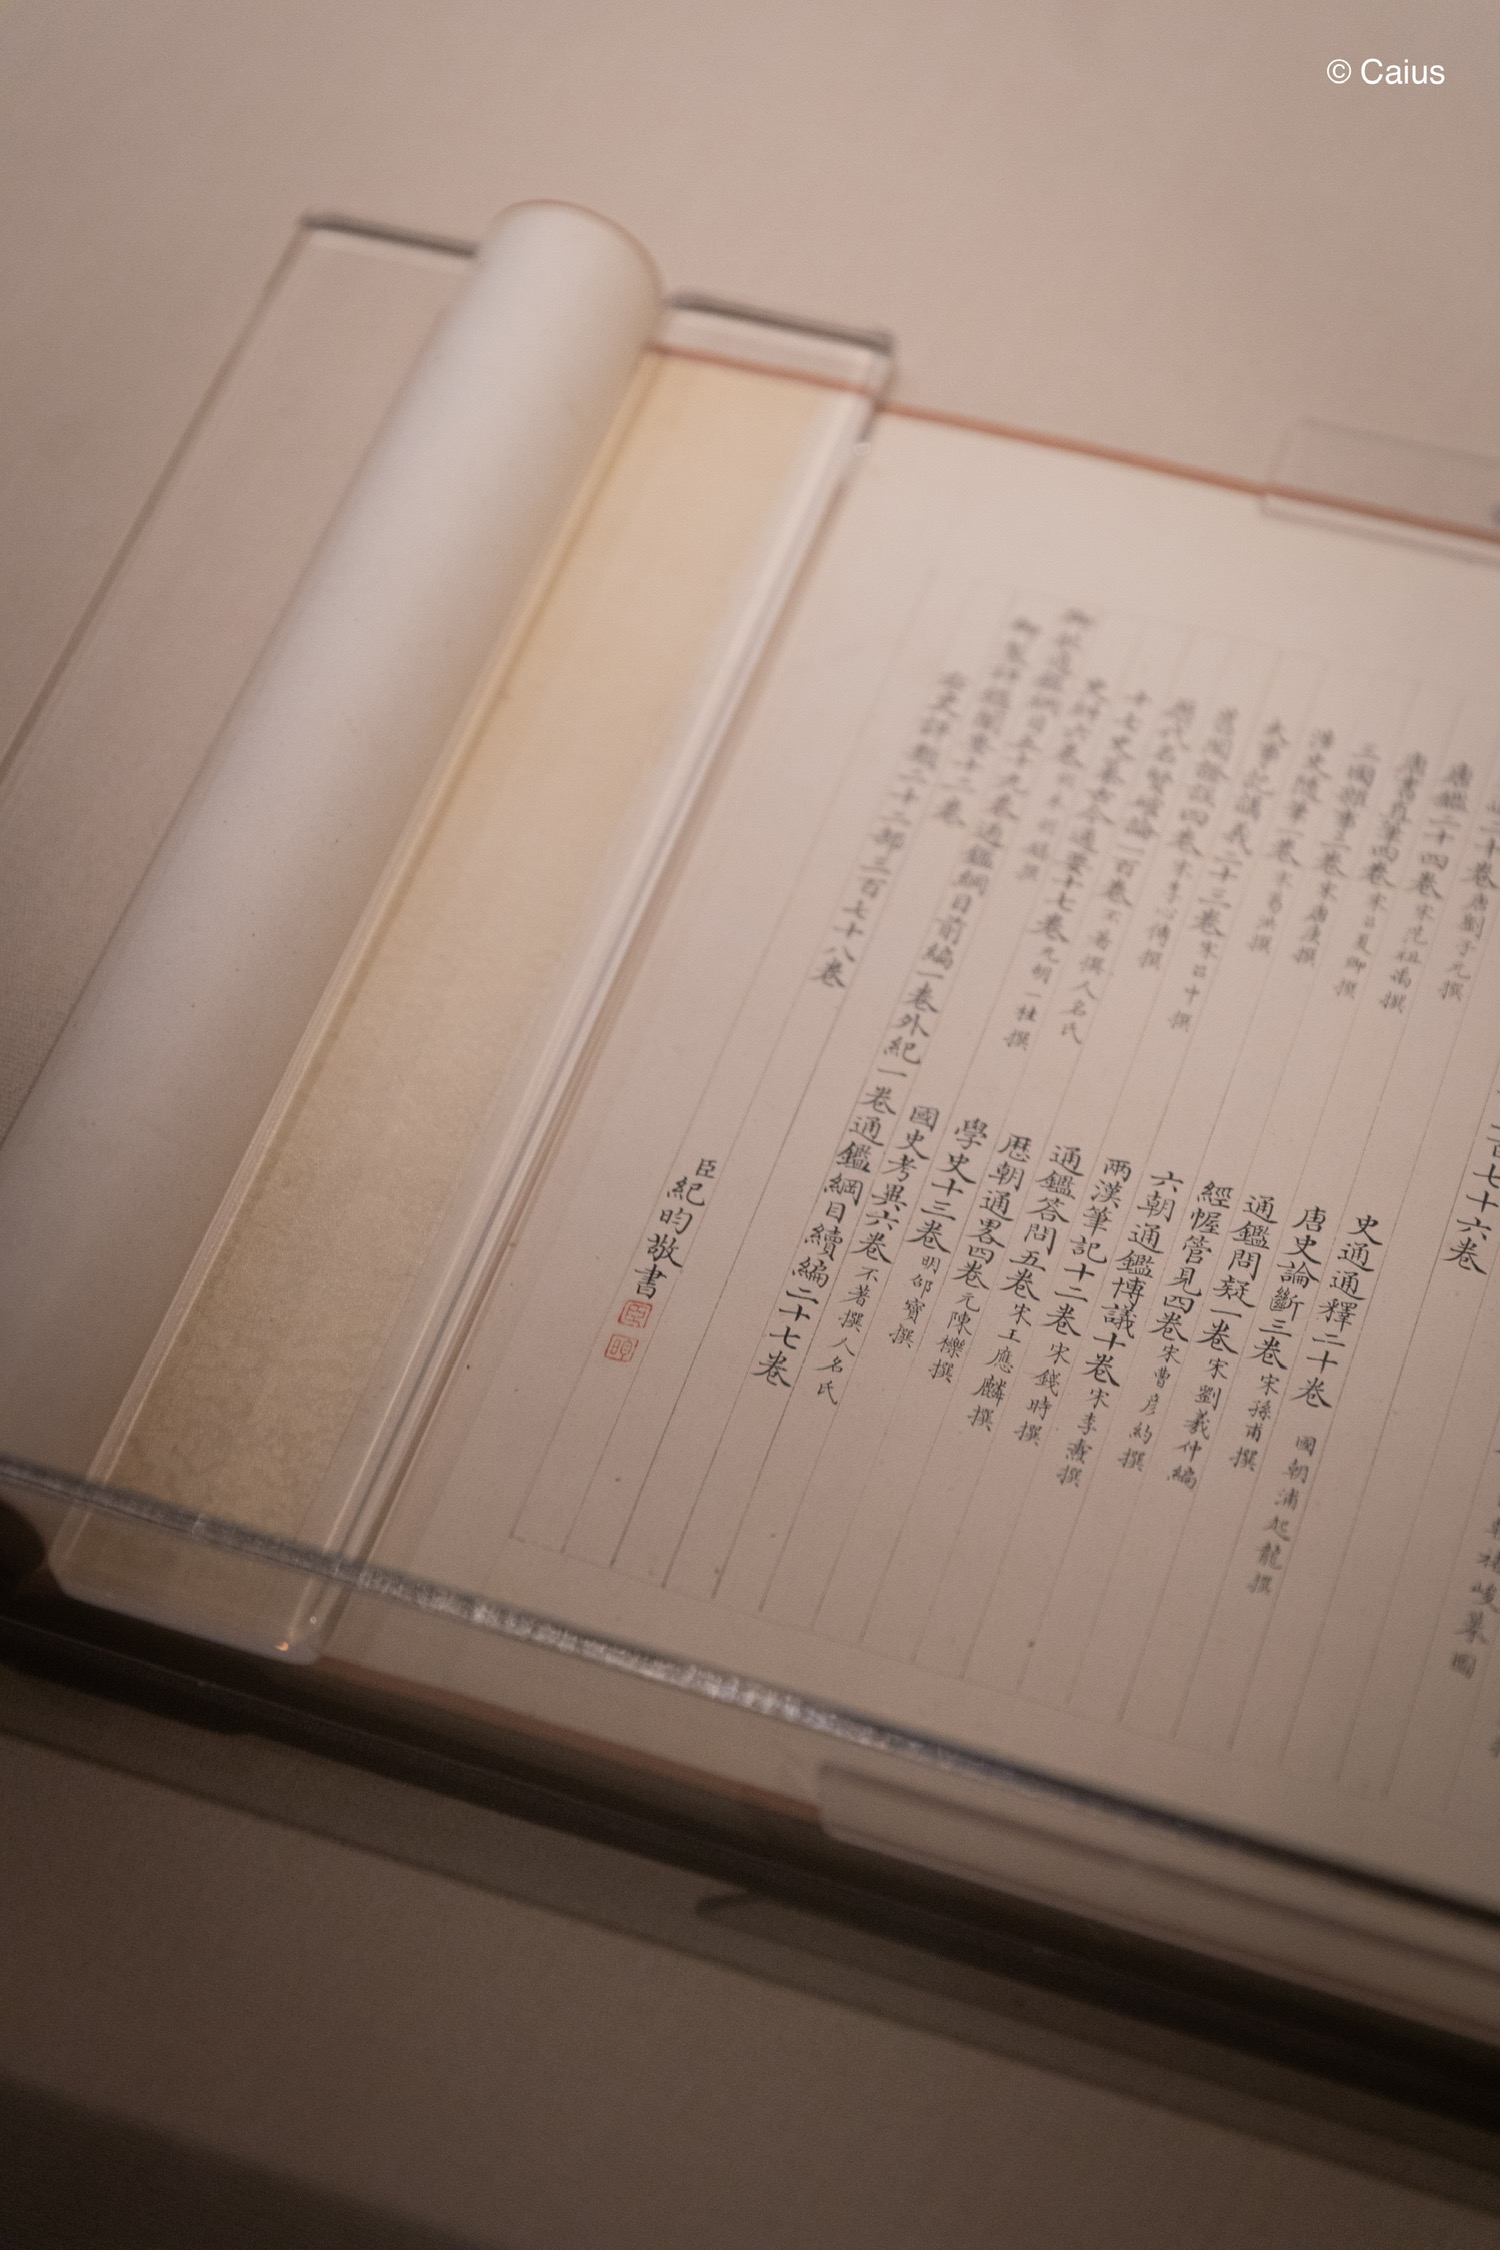 © Caius
二百七十六卷
二十卷唐劉子元撰 史通通釋二十卷 國朝浦起龍撰
唐鑑二十四卷宋范祖禹撰 唐史論斷三卷宋孫甫撰
唐書直筆四卷宋呂夏卿撰 通鑑問疑一卷宋劉羲仲編
三國雜事二卷宋唐庚撰 經幄管見四卷宋曹彥約撰
涉史隨筆一卷宋葛洪撰 六朝通鑑博議十卷宋李燾撰
大事記講義二十三卷宋呂中撰 兩漢筆記十二卷宋錢時撰
舊聞證誤四卷宋李心傳撰 通鑑答問五卷宋王應麟撰
歷代名賢確論一百卷不著撰人名氏 厯朝通畧四卷元陳櫟撰
十七史纂古今通要十七卷元胡一桂撰 學史十三卷明邵寶撰
史糾六卷明朱明鎬撰 國史考異六卷不著撰人名氏
御批通鑑綱目五十九卷通鑑綱目前編一卷外紀一卷通鑑綱目續編二十七卷
御製評鑑闡要十二卷
右史評類二十二部三百七十八卷
臣紀昀敬書
臣
昀